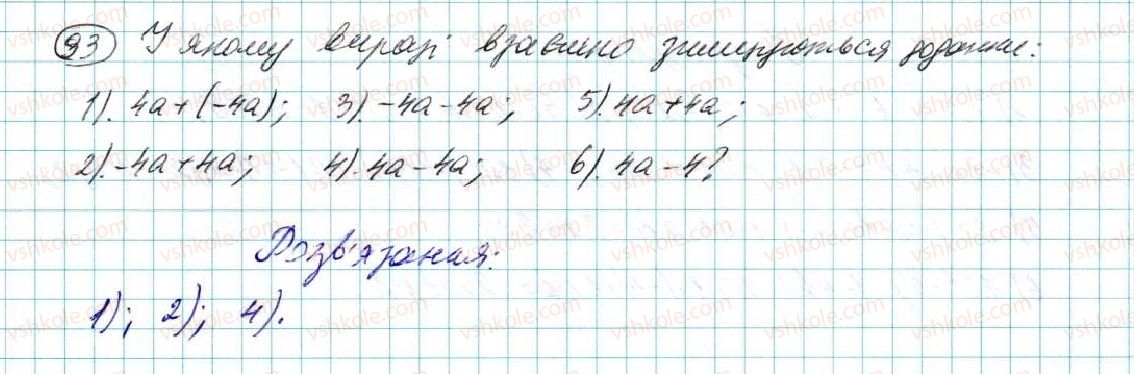 93 У якому виразі взаємно знищуються доданки:
1). 4a+(-4a); 3). -4a-4a; 5). 4a+4a;
2). -4a+4a; 4). 4a-4a; 6). 4a-4?
Розв'язання:
1); 2); 4).
vshkole.com